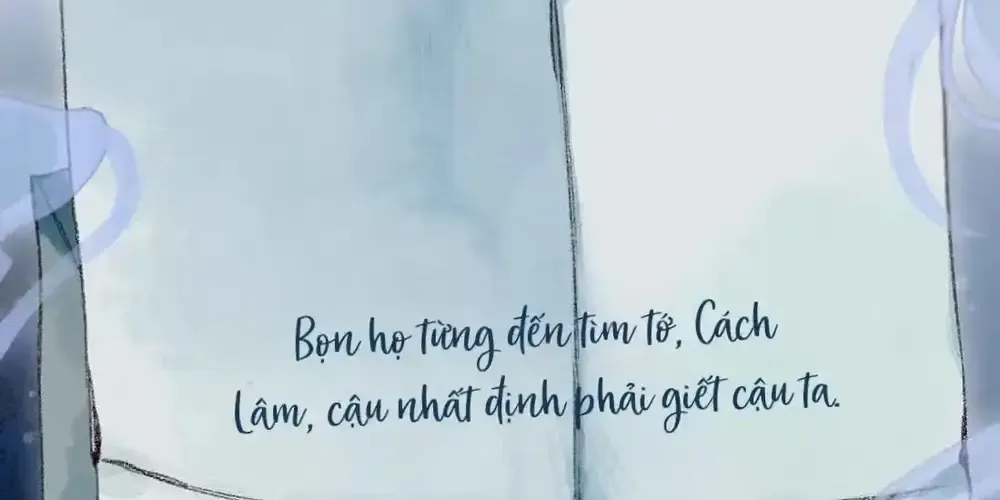 Bọn họ từng đến tìm tớ, Cách
Lâm, cậu nhất định phải giết cậu ta.